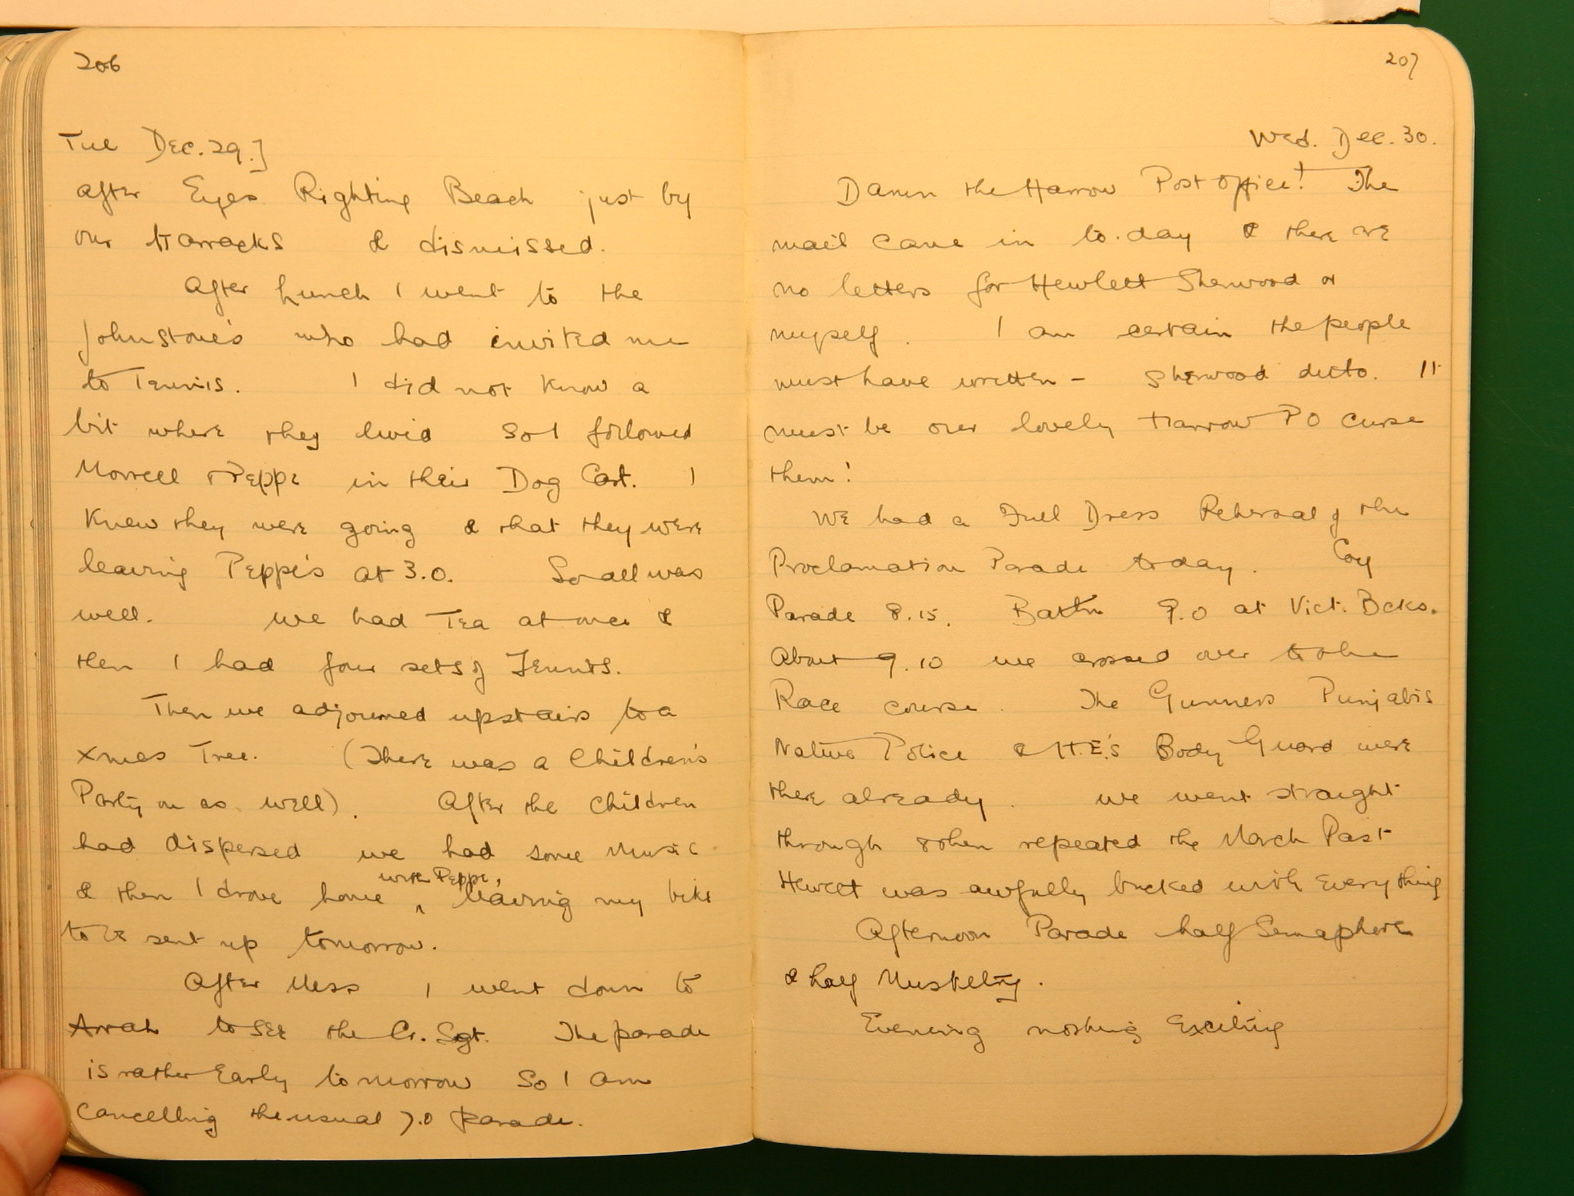 206
Tue Dec. 29.]
after Eyes Righting Beach just by
our barracks & dismissed.
After lunch I went to the
Johnstone's who had invited me
to Tennis. I did not know a
bit where they livid so I followed
Morrell & Peppe in their Dog Cart. I
knew they were going & that they were
leaving Peppe's at 3.0. So all was
well. We had Tea at once &
then I had four sets of Tennis.
Then we adjourned upstairs to a
Xmas Tree. (There was a Children's
Party on as well). After the children
had dispersed we had some Music
& then I drove home with Peppe, leaving my bike
to be sent up tomorrow.
After Mess I went down to
Arrah to see the Cr. Sgt. The parade
is rather Early tomorrow so I am
cancelling the usual 7.0 parade.
207
Wed. Dec. 30.
Damn the Harrow Post office! The
mail came in to.day & there are
no letters for Hewlett Sherwood or
myself. I am certain the people
must have written - Sherwood ditto. It
must be our lovely Harrow PO curse
them!
We had a Full Dress Rehersal of the
Proclamation Parade today. Coy
Parade 8.15. Battn 9.0 at Vict. Bcks.
About 9.10 we crossed over to the
Race course. The Gunners Punjabis
Native Police & H.E's Body Guard were
there already. We went straight
through & then repeated the March Past
Hewett was awfully bucked with Everything
Afternoon Parade half Semaphore
& half Musketry.
Evening nothing Exciting